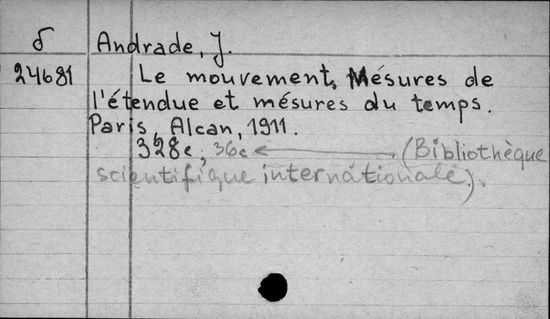 δ Andrade, J.
24681 Le mouvement. Mésures de
l'étendue et mésures du temps.
Paris, Alcan, 1911.
328c; 36c (Bibliothèque
scientifique internationale).